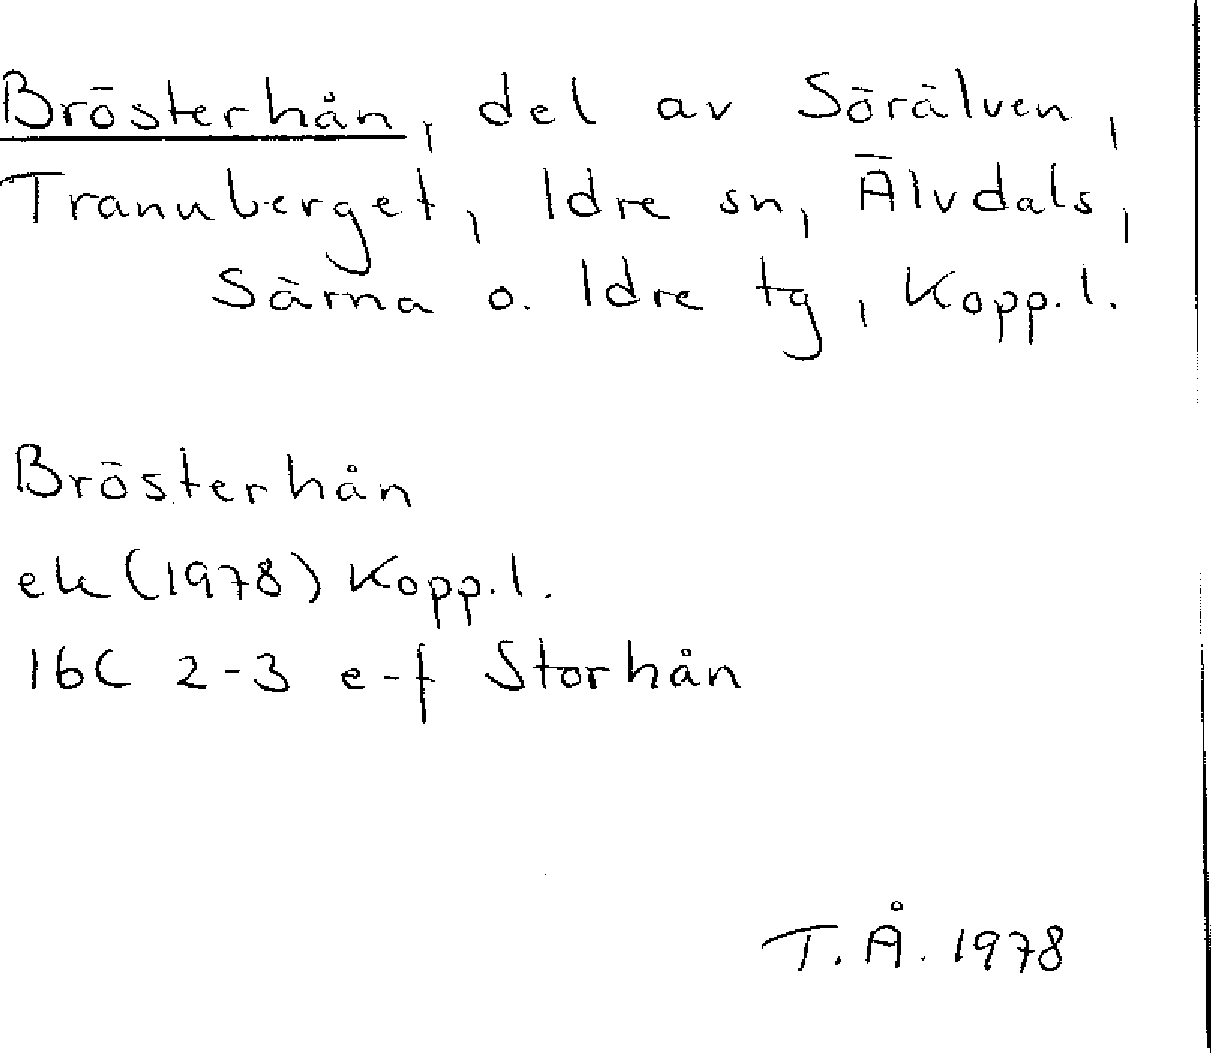 Brösterhån, del av Sörälven,
Trannberget, Idre sn, Älvdals,
Särna o. Idre tg, Kopp. l.
Brösterhån
ek (1978) Kopp. l.
16C 2-3 e-f Storhån
T. Å. 1978